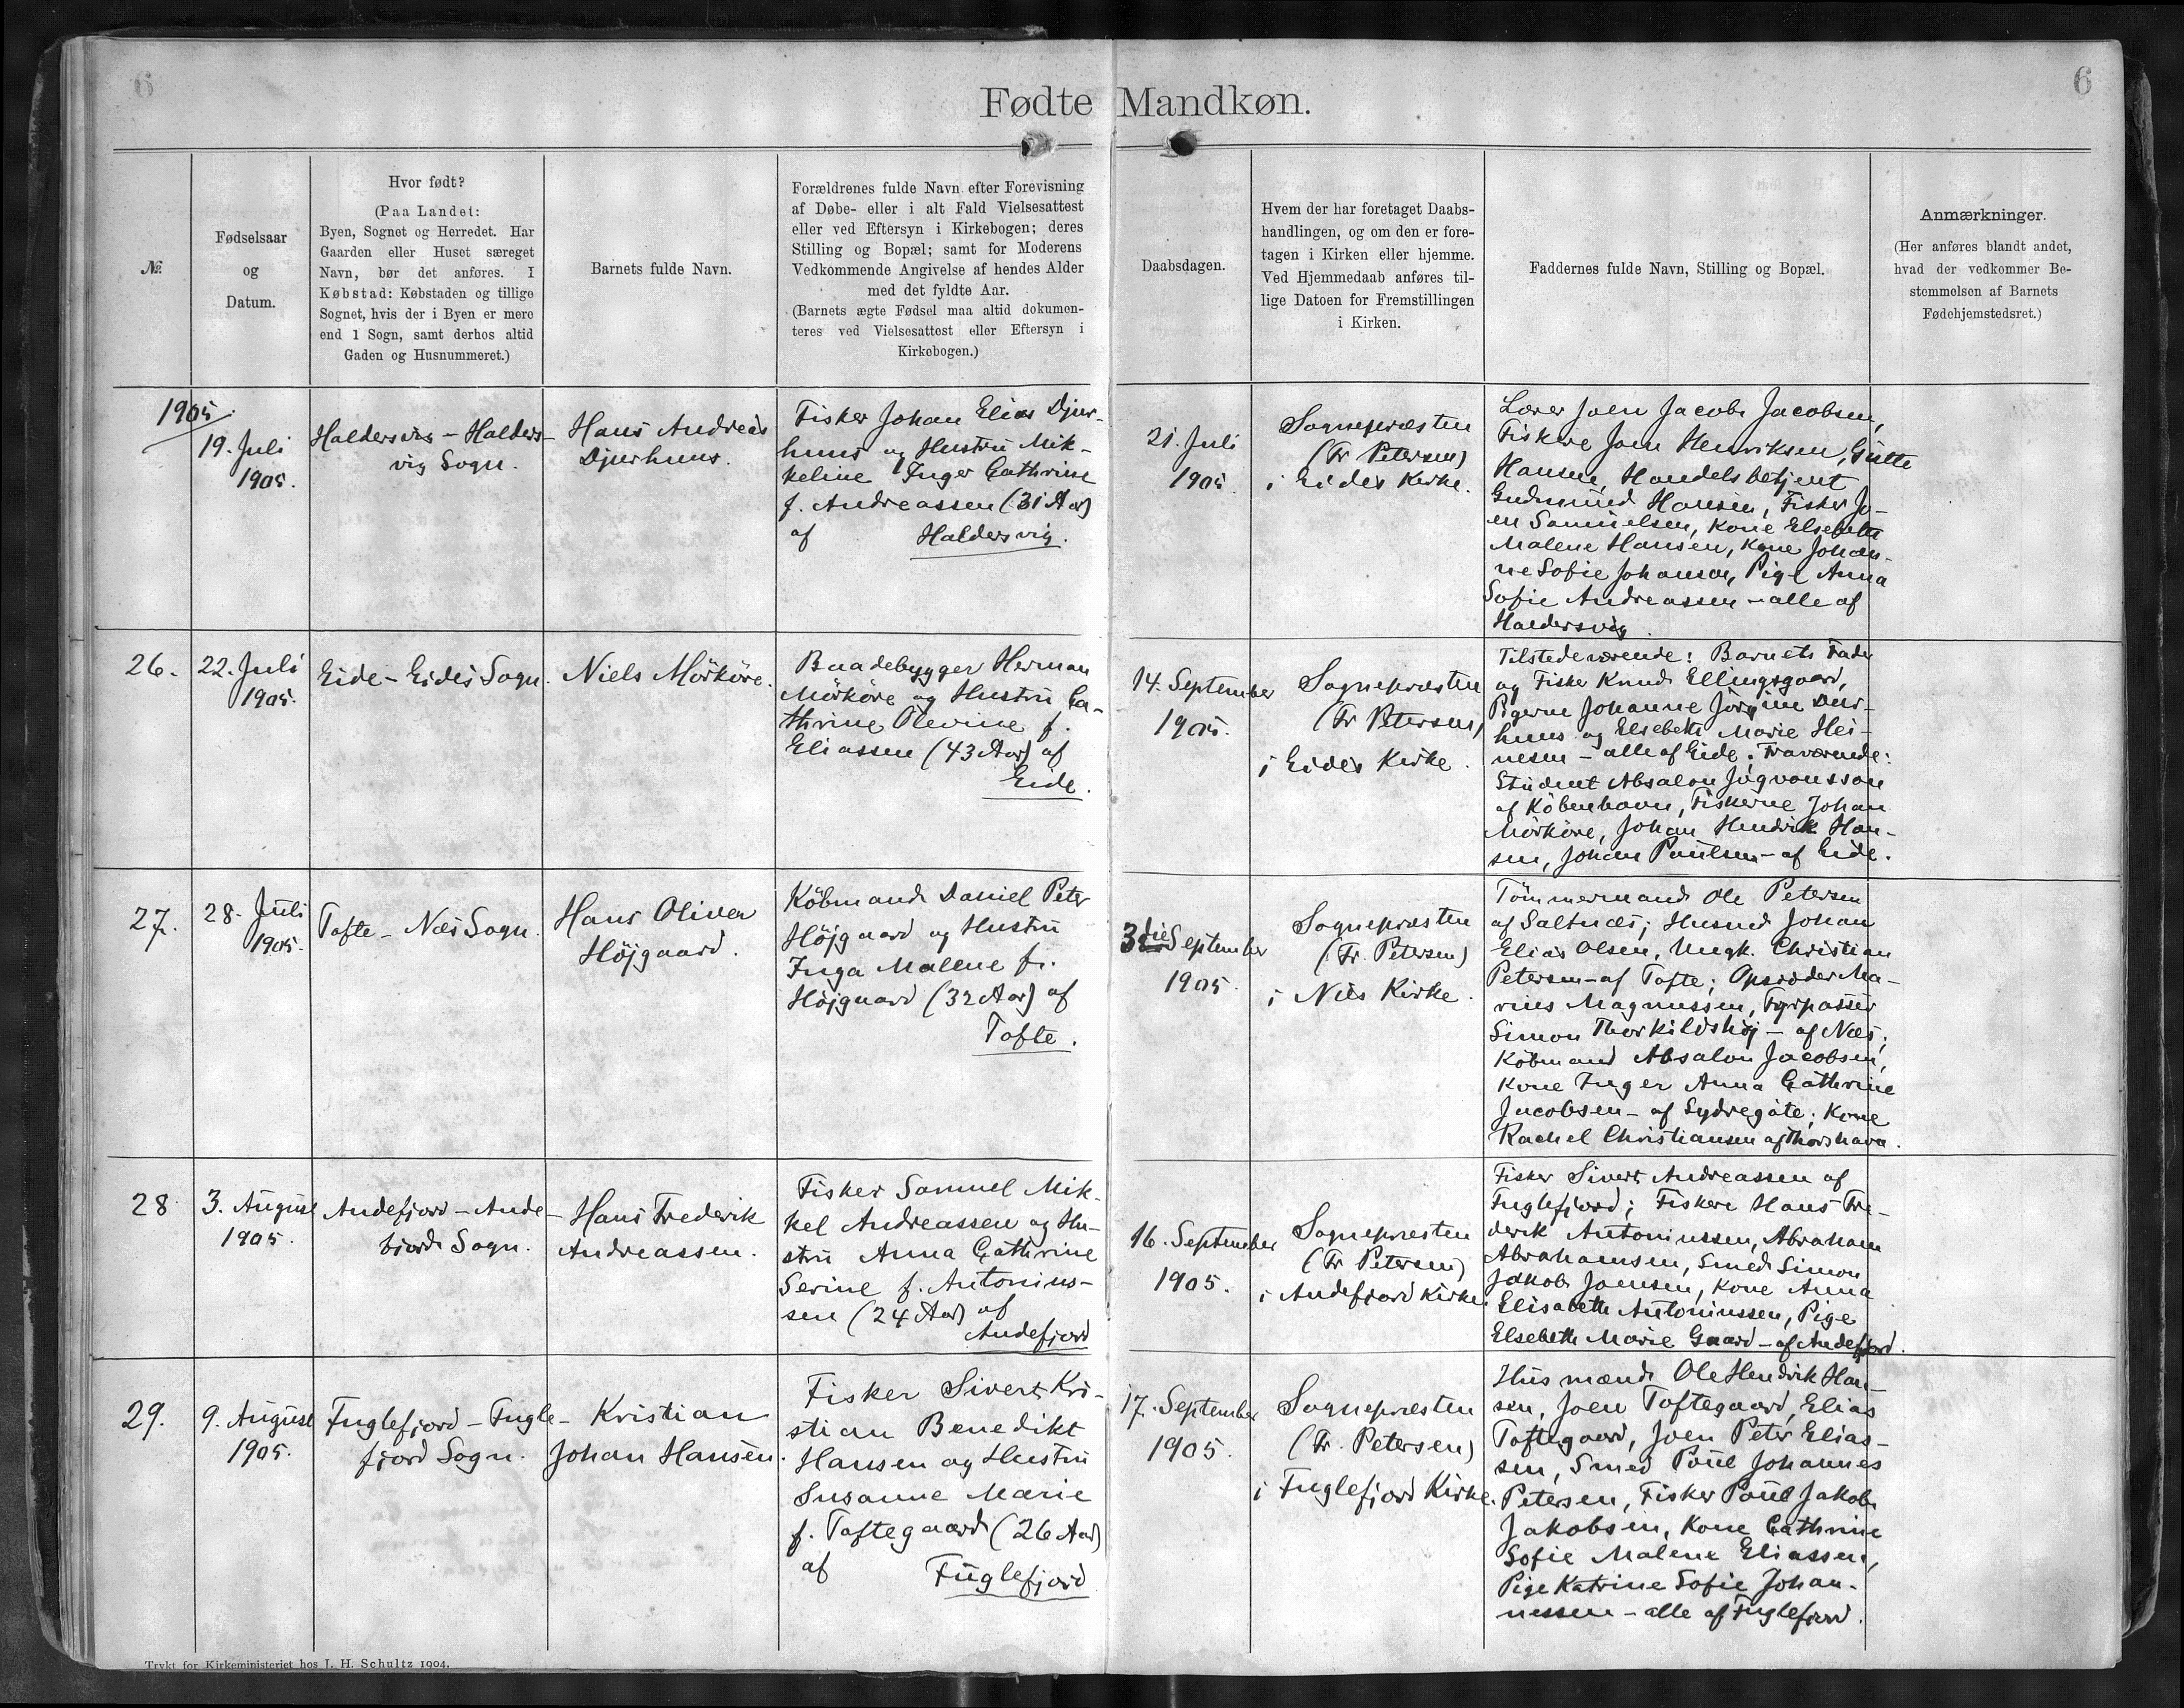 6
6
Fødte Mandkøn.
№
Fødselsaar
og
Datum.
Hvor født?
(Paa Landet:
Byen, Sognet og Herredet. Har
Gaarden eller Huset særeget
Navn, bør det anføres. I
Købstad: Købstaden og tillige
Sognet, hvis der i Byen er mere
end 1 Sogn, samt derhos altid
Gaden og Husnummeret.)
Barnets fulde Navn.
Forældrenes fulde Navn efter Forevisning
af Døbe- eller i alt Fald Vielsesattest
eller ved Eftersyn i Kirkebogen; deres
Stilling og Bopæl; samt for Moderens
Vedkommende Angivelse af hendes Alder
med det fyldte Aar.
(Barnets ægte Fødsel maa altid dokumen-
teres ved Vielsesattest eller Eftersyn i
Kirkebogen.)
Daabsdagen.
Hvem der har foretaget Daabs-
handlingen, og om den er fore-
tagen i Kirken eller hjemme.
Ved Hjemmedaab anføres til-
lige Datoen for Fremstillingen
i Kirken.
Faddernes fulde Navn, Stilling og Bopæl.
Anmærkninger.
(Her anføres blandt andet,
hvad der vedkommer Be-
stemmelsen af Barnets
Fødehjemstedsret.)
1905.
19. Juli
1905.
Haldersvig - Halders-
vig Sogn.
Hans Andreas
Djurhuus.
Fisker Johan Elias Djur-
huus og Hustrü Mik-
keline Inger Cathrine
f. Andreassen (31 Aar)
af Haldersvig.
21. Juli
1905.
Sognepræsten
(Fr Petersen)
i Eides Kirke.
Lærer Joen Jacob Jacobsen,
Fiskere Joen Henriksen, Gutte
Hansen, Handelsbetjent
Gudmünd Hansen, Fisker Jo-
en Samuelsen, Kone Elsebeth
Malene Hansen, Kone Johan-
ne Sofie Johansen, Pige Anna
Sofie Andreassen - alle af
Haldersvig.
26.
22. Juli
1905.
Eide - Eides Sogn.
Niels Mörköre.
Baadebygger Herman
Mörköre og Hustrü Ca-
thrine Olevine f.
Eliassen (43 Aar) af
Eide.
14. September
1905.
Sognepræsten
(Fr Petersen)
i Eides Kirke.
Tilstedeværende: Barnets Fader
og Fisker Knud Ellingsgaard,
Pigerne Johanne Jörgine Djur-
huus og Elsebeth Marie Hei-
nesen - alle af Eide; Fraværende:
Stüdent Absalon Jógvansson
af Köbenhavn, Fiskerne Johan
Mörköre, Johan Hendrik Han-
sen, Johan Poülsen - af Eide.
27.
28. Juli
1905.
Tofte - Næs Sogn.
Hans Oliver
Höjgaard.
Köbmand Daniel Peter
Höjgaard og Hustrü
Inga Malene f.
Höjgaard (32 Aar) af
Tofte.
3die September
1905.
Sognepræsten
(Fr. Petersen)
i Næs Kirke.
Tömmermand Ole Petersen
af Saltnæs; Husmd Johan
Elias Olsen, Ungk. Christian
Petersen - af Tofte; Opsidder Ma-
rius Magnussen, Fyrpasser
Simon Thorkildshöj - af Næs;
Köbmand Absalon Jacobsen,
Kone Inger Anna Cathrine
Jacobsen - af Sydregöte; Kone
Rachel Christiansen af Thorshavn.
28
3. August
1905.
Andefjord - Ande-
fjords Sogn.
Hans Frederik
Andreassen.
Fisker Samuel Mik-
kel Andreassen og Hu-
strü Anna Cathrine
Serine f. Antonius-
sen (24 Aar) af
Andefjord
16. September
1905.
Sognepræsten
(Fr Petersen)
i Andefjord Kirke.
Fisker Sivert Andreassen af
Fuglefjord; Fiskere Hans Fre-
derik Antoniussen, Abraham
Abrahamsen, Smed Simon
Jakob Joensen, Kone Anna
Elisabeth Antoniussen, Pige
Elsebeth Marie Gaard - af Andefjord.
29.
9. August
1905.
Fuglefjord - Fugle-
fjord Sogn.
Kristian
Johan Hansen.
Fisker Sivert Kri-
stian Benedikt
Hansen og Hustrü
Susanne Marie
f. Toftegaard (26 Aar)
af Füglefjord
17. September
1905.
Sognepræsten
(Fr. Petersen)
i Fuglefjord Kirke.
Husmænd Ole Hendrik Han-
sen, Joen Toftegaard, Elias
Toftegaard, Joen Peter Elias-
sen, Smed Poül Johannes
Petersen, Fisker Poül Jakob
Jakobsen, Kone Cathrine
Sofie Malene Eliassen,
Pige Katrine Sofie Johan-
nessen - alle af Fuglefjord.
Trykt for Kirkeministeriet hos J. H. Schultz 1904.